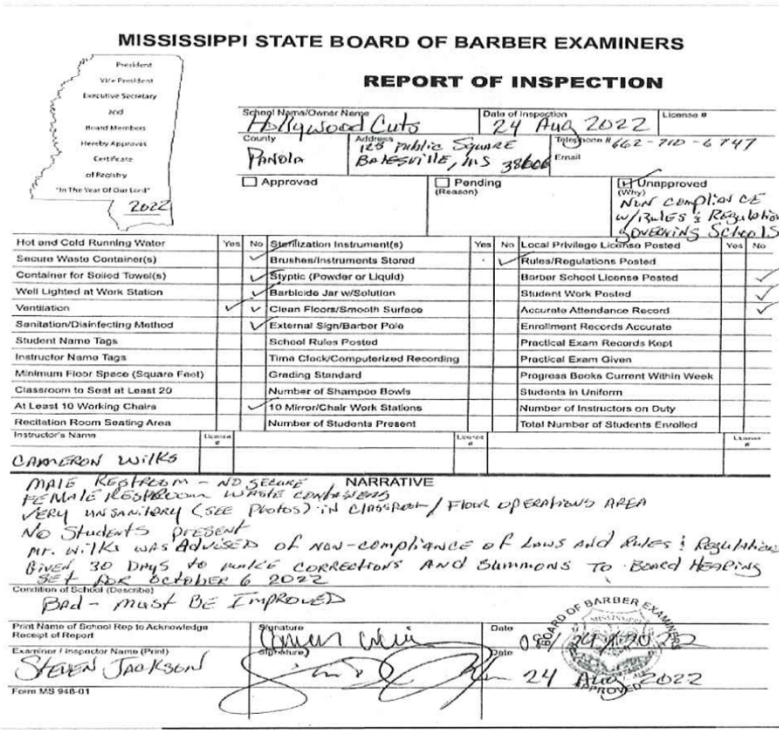 MISSISSIPPI STATE BOARD OF BARBER EXAMINERS
President
Vice President
Executive Secretary
and
Board Members
Hereby Approves
Certificate
of Registry
"In The Year Of Our Lord"
2022
REPORT OF INSPECTION
School Name/Owner Name
Hollywood Cuts
Date of Inspection
24 Aug 2022
License #
County
PANOLA
Address
125 Public Square
BATESVILLE, MS 38606
Telephone # 662-710-6747
Email
Approved
Pending
(Reason)
Unapproved
(Why)
NON COMPLIANCE
w/RULES & Regulation
GOVERNING SCHOOLS
Hot and Cold Running Water Yes No Sterilization Instrument(s) Yes No Local Privilege License Posted Yes No
Secure Waste Container(s) Brushes/Instruments Stored Rules/Regulations Posted
Container for Soiled Towel(s) Styptic (Powder or Liquid) Barber School License Posted
Well Lighted at Work Station Barbicide Jar w/Solution Student Work Posted
Ventilation Clean Floors/Smooth Surface Accurate Attendance Record
Sanitation/Disinfecting Method External Sign/Barber Pole Enrollment Records Accurate
Student Name Tags School Rules Posted Practical Exam Records Kept
Instructor Name Tags Time Clock/Computerized Recording Practical Exam Given
Minimum Floor Space (Square Feet) Grading Standard Progress Books Current Within Week
Classroom to Seat at Least 20 Number of Shampoo Bowls Students in Uniform
At Least 10 Working Chairs 10 Mirror/Chair Work Stations Number of Instructors on Duty
Recitation Room Seating Area Number of Students Present Total Number of Students Enrolled
Instructor's Name License # License # License #
CAMERON WILKS
NARRATIVE
MALE RESTROOM - NO SECURE
FEMALE RESTROOM WASTE CONTAINERS
VERY UNSANITARY (SEE Photos) IN CLASSROOM / FLOOR OPERATIONS AREA
NO Students PRESENT
Mr. Wilks WAS ADVISED OF NON-COMPLIANCE OF LAWS AND RULES & REGULATIONS
GIVEN 30 DAYS to MAKE CORRECTIONS AND SUMMONS TO BOARD HEARING
SET FOR OCTOBER 6 2022
Condition of School (Describe)
BAD - MUST BE IMPROVED
Print Name of School Rep to Acknowledge
Receipt of Report
Signature
Date
BOARD OF BARBER EXAMINERS
MISSISSIPPI
APPROVED
Examiner / Inspector Name (Print)
STEVEN JACKSON
Signature)
Date
24 Aug 2022
Form MS 948-01